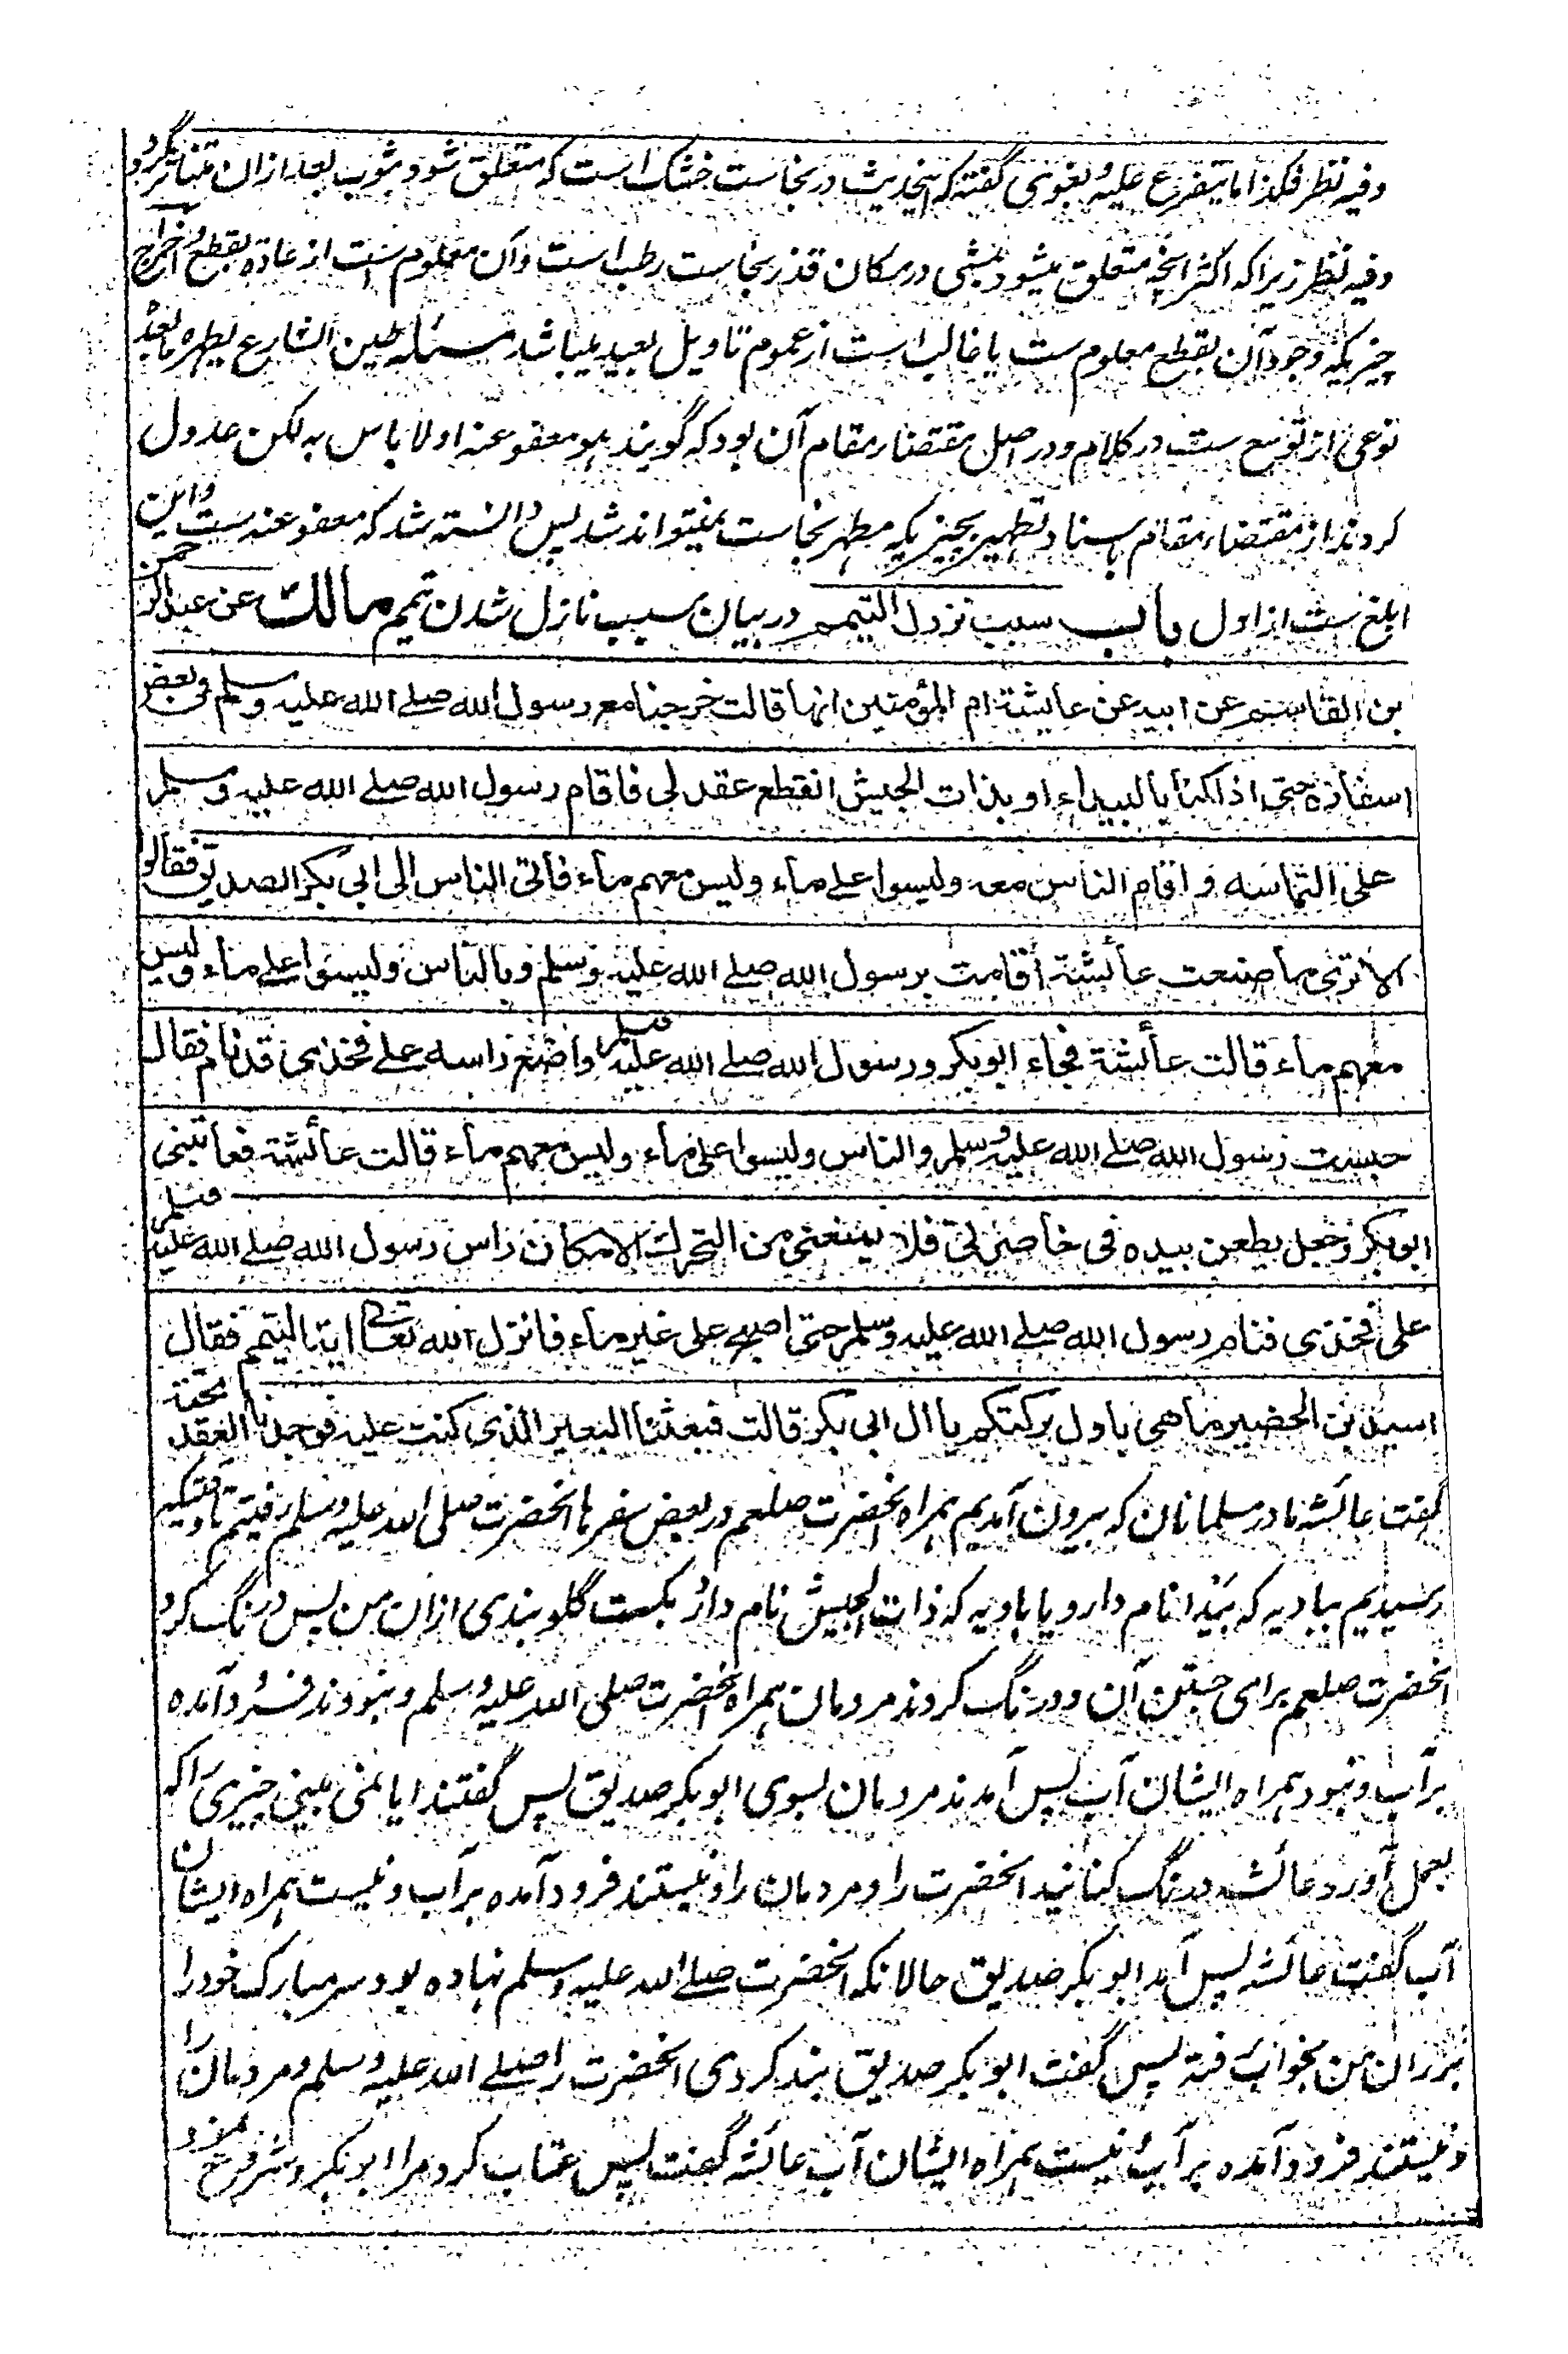 وفیه نظر فکذا ما یتفرع علیه و بغوی گفته که اینحدیث در نجاست خشک است که متعلق شود بثوب بعد ازان متناثر گردد
وفیه نظر زیرا که اکثر انچه متعلق میشود بمشی در مکان قذر نجاست رطب است وآن معلوم است از عادة بقطع و اخراج
چیزیکه وجود آن بقطع معلوم ست یا غالب است از عموم تاویل بعید میباشد مسئله طین الشارع یطهره ما بعده
نوعی از توسع ست در کلام و در اصل مقتضاء مقام آن بود که گویند هو معفو عنه او لا باس به لکن عدول
کردند از مقتضاء مقام باسناد تطهیر بچیزیکه مطهر نجاست نمیتواند شد پس دانسته شد که معفو عنه ست و این
ابلغ ست از اول باب سبب نزول التیمم در بیان سبب نازل شدن تیمم مالك عن عبد الرحمن
بن القاسم عن ابیه عن عایشة ام المؤمنین انها قالت خرجنا مع رسول الله صلے الله علیه وسلم فی بعض
اسفاره حتی اذا کنا بالبیداء او بذات الجیش انقطع عقد لی فاقام رسول الله صلے الله علیه وسلم
علی التماسه و اقام الناس معه ولیسوا علے ماء ولیس معهم ماء فاتی الناس الی ابی بکر الصدیق فقالوا
الا تری ما صنعت عائشة اقامت برسول الله صلے الله علیه وسلم وبالناس ولیسوا علے ماء ولیس
معهم ماء قالت عائشة فجاء ابوبکر ورسول الله صلے الله علیه وسلم واضع راسه علے فخذی قد نام فقال
حبست رسول الله صلے الله علیه وسلم والناس ولیسوا علی ماء ولیس معهم ماء قالت عائشة فعاتبنی
ابوبکر وجعل یطعن بیده فی خاصرتی فلا یمنعنی من التحرك الا مکان راس رسول الله صلے الله علیه وسلم
علی فخذی فنام رسول الله صلے الله علیه وسلم حتی اصبح علی غیر ماء فانزل الله تعالی ایة التیمم فقال
اسید بن الحضیر ما هی باول برکتکم یا ال ابی بکر قالت فبعثنا البعیر الذی کنت علیه فوجدنا العقد تحته
گفت عائشه مادر مسلمانان که بیرون آمدیم همراه آنحضرت صلعم در بعض سفرها آنحضرت صلی الله علیه وسلم رفتیم تا وقتیکه
رسیدیم ببادیه که بیدا نام دارد یا بادیه که ذات الجیش نام دارد بگست گلوبندی ازان من پس درنگ کرد
آنحضرت صلعم برای جستن آن و درنگ کردند مردمان همراه آنحضرت صلی الله علیه وسلم و نبودند فرود آمده
بر آب و نبود همراه ایشان آب پس آمدند مردمان بسوی ابوبکر صدیق پس گفتند ایا نمی بینی چیزی را که
بعمل آورد عائشه درنگ کنانید آنحضرت را و مردمان را و نیستند فرود آمده بر آب و نیست همراه ایشان
آب گفت عائشه پس آمد ابوبکر صدیق حالانکه آنحضرت صلے الله علیه وسلم نهاده بود سر مبارک خود را
بر ران من بخواب رفته پس گفت ابوبکر صدیق بند کردی آنحضرت را صلے الله علیه وسلم و مردمان را
و نیستند فرود آمده بر آب و نیست همراه ایشان آب عائشه گفت پس عتاب کرد مرا ابوبکر و